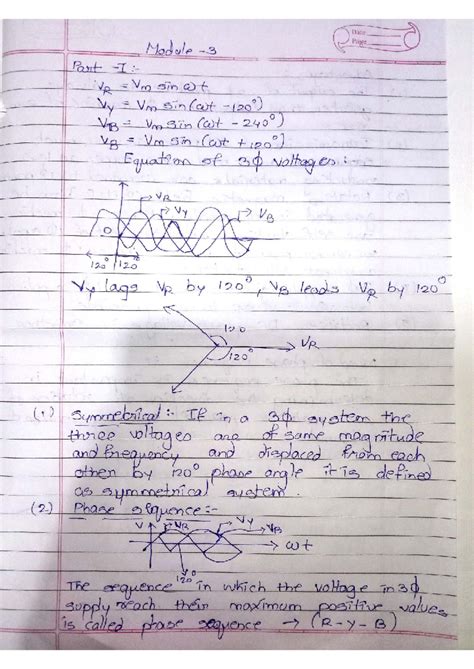 Date
Page
Module - 3
Part - I :-
VR = Vm sin ωt
VY = Vm sin (ωt - 120°)
VB = Vm sin (ωt - 240°)
VB = Vm sin (ωt + 120°)
Equation of 3ϕ voltages :-
VR
VY
VB
0
120° 120°
VY lags VR by 120°, VB leads VR by 120°
120
VR
120°
(1) Symmetrical :- If in a 3ϕ system the
three voltages are of same magnitude
and frequency and displaced from each
other by 120° phase angle it is defined
as symmetrical system.
(2) Phase sequence :-
V VR VY VB
ωt
120°
The sequence in which the voltage in 3ϕ
supply reach their maximum positive values
is called phase sequence → (R-Y-B)